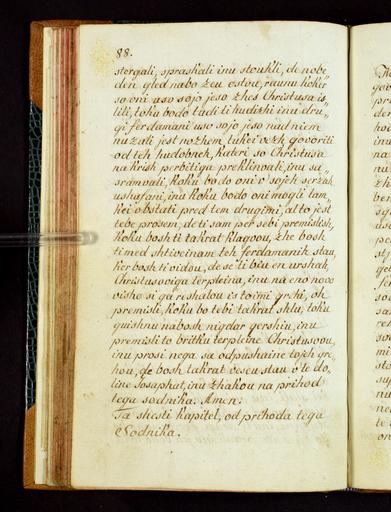 88.
stergali, sprashali inu stoukli, de nobe
den gled nabo zeu ostou, raunu koker
so oni uso sojo jeso zhes Christusa is
lili, toku bodo tudi ti hudizhi inu dru=
gi ferdamani uso sojo jeso nad niem
nu zati jest nozhem, tukei vezh govoriti
od teh hudobneh, kateri so Christusa
na krish perbitiga preklinvali, inu sa=
sramvali, koku bodo oni v sojeh serzah
ushafani, inu koku bodo oni mogli tam
kei obstati pred tem drugimi, al to jest
tebe prosem, de ti sam per sebi premislish,
koku bosh ti takrat klagvou, zhe bosh
ti med shtiveinam teh ferdamaneh stau,
ker bosh ti vidou, de se ti biu en urshah,
Christusoviga terpleina, inu na eno novo
visho si ga reshalou is toimi grehi, oh
premisli, koku bo tebi takrat shlu, toku
guishnu nabosh nigdar gershiu, inu
premisli to britku terpleine Christusovu,
inu prosi nega sa odpushaine tojeh gre
hou, de bosh takrat veseu stau v te do,
line Josaphat, inu zhakou na prihod
tega sodnika. Amen.
Ta shesti kapitel, od prihoda tega
Sodnika.